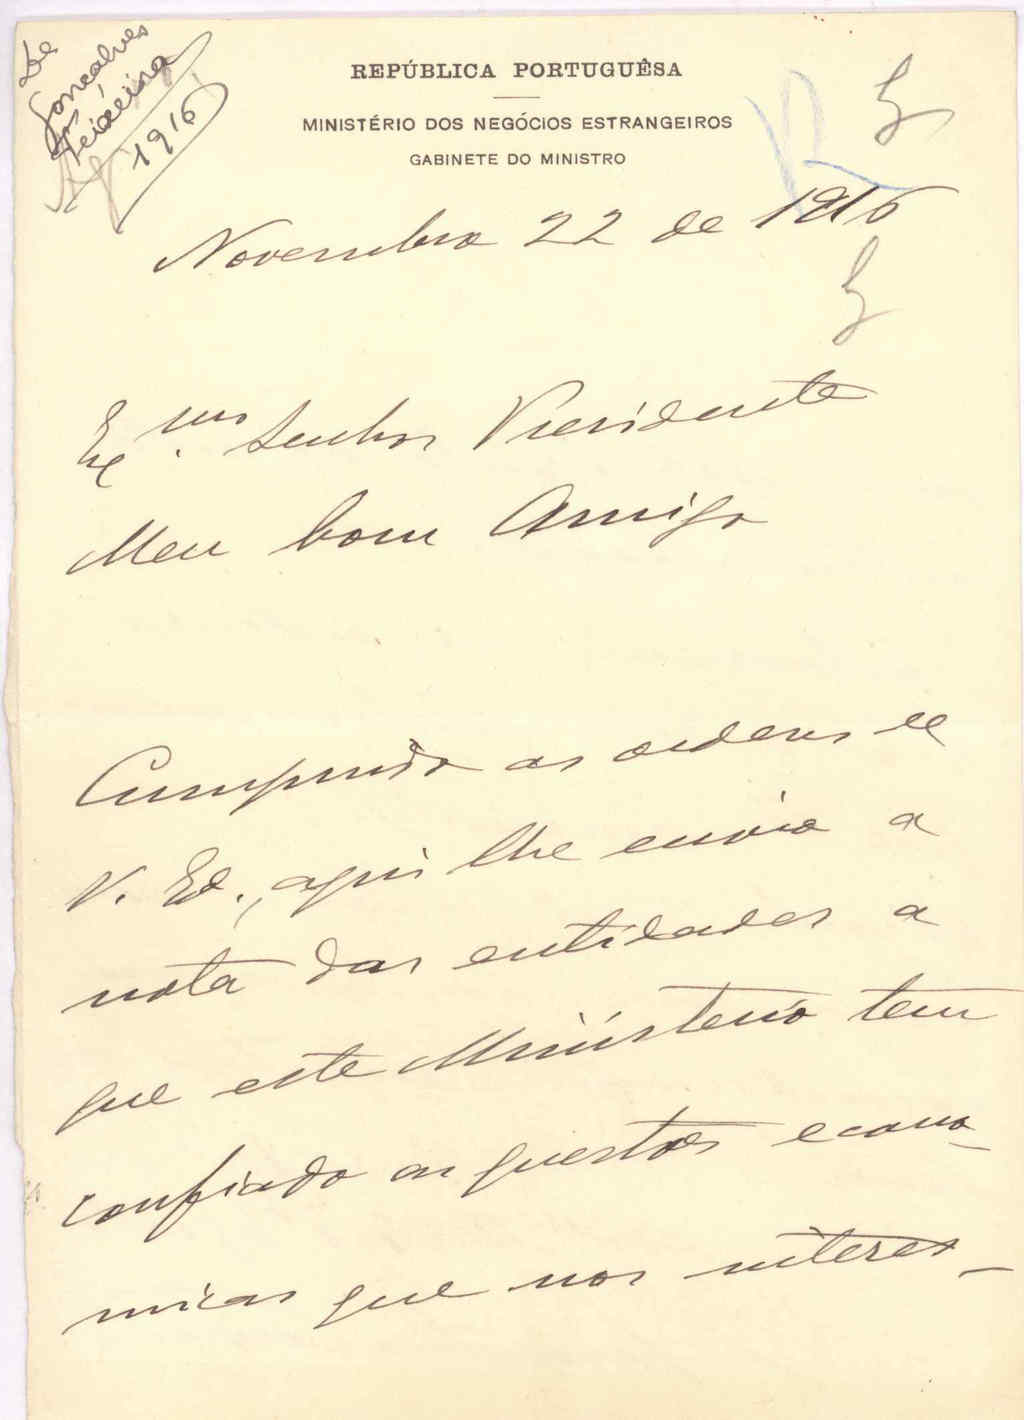 De
Gonçalves
Teixeira
1916
REPÚBLICA PORTUGUÊSA
MINISTÉRIO DOS NEGÓCIOS ESTRANGEIROS
GABINETE DO MINISTRO
Novembro 22 de 1916
Ex.mo Senhor Presidente
Meu bom Amigo
Cumprindo as ordens de
V. Ex., aqui lhe envio a
nota das entidades a
que este Ministério tem
confiado as questões econo-
micas que nos interes-